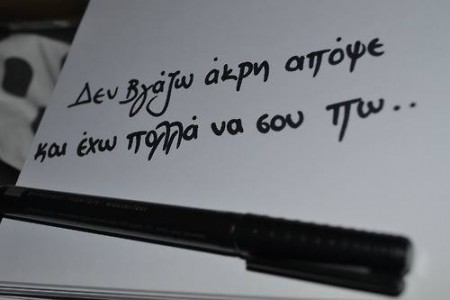 Δεν Βγάζω άκρη απόψε
και έχω πολλά να σου πω..